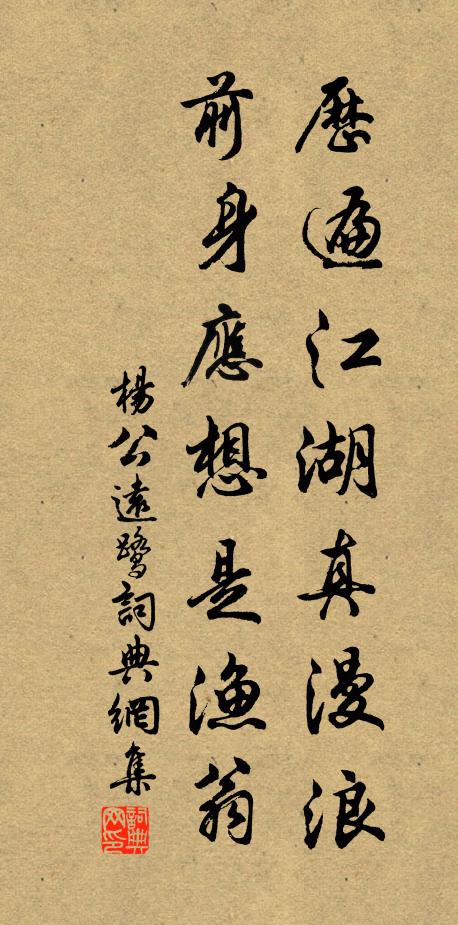 歷遍江湖真漫浪
前身應想是漁翁
楊公遠鷺詞典網集
詞典網印